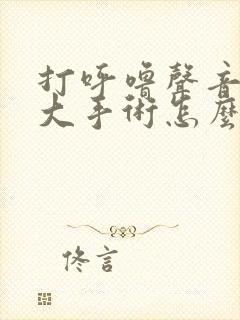 打呼嚕聲音
大手術怎麼
佟言